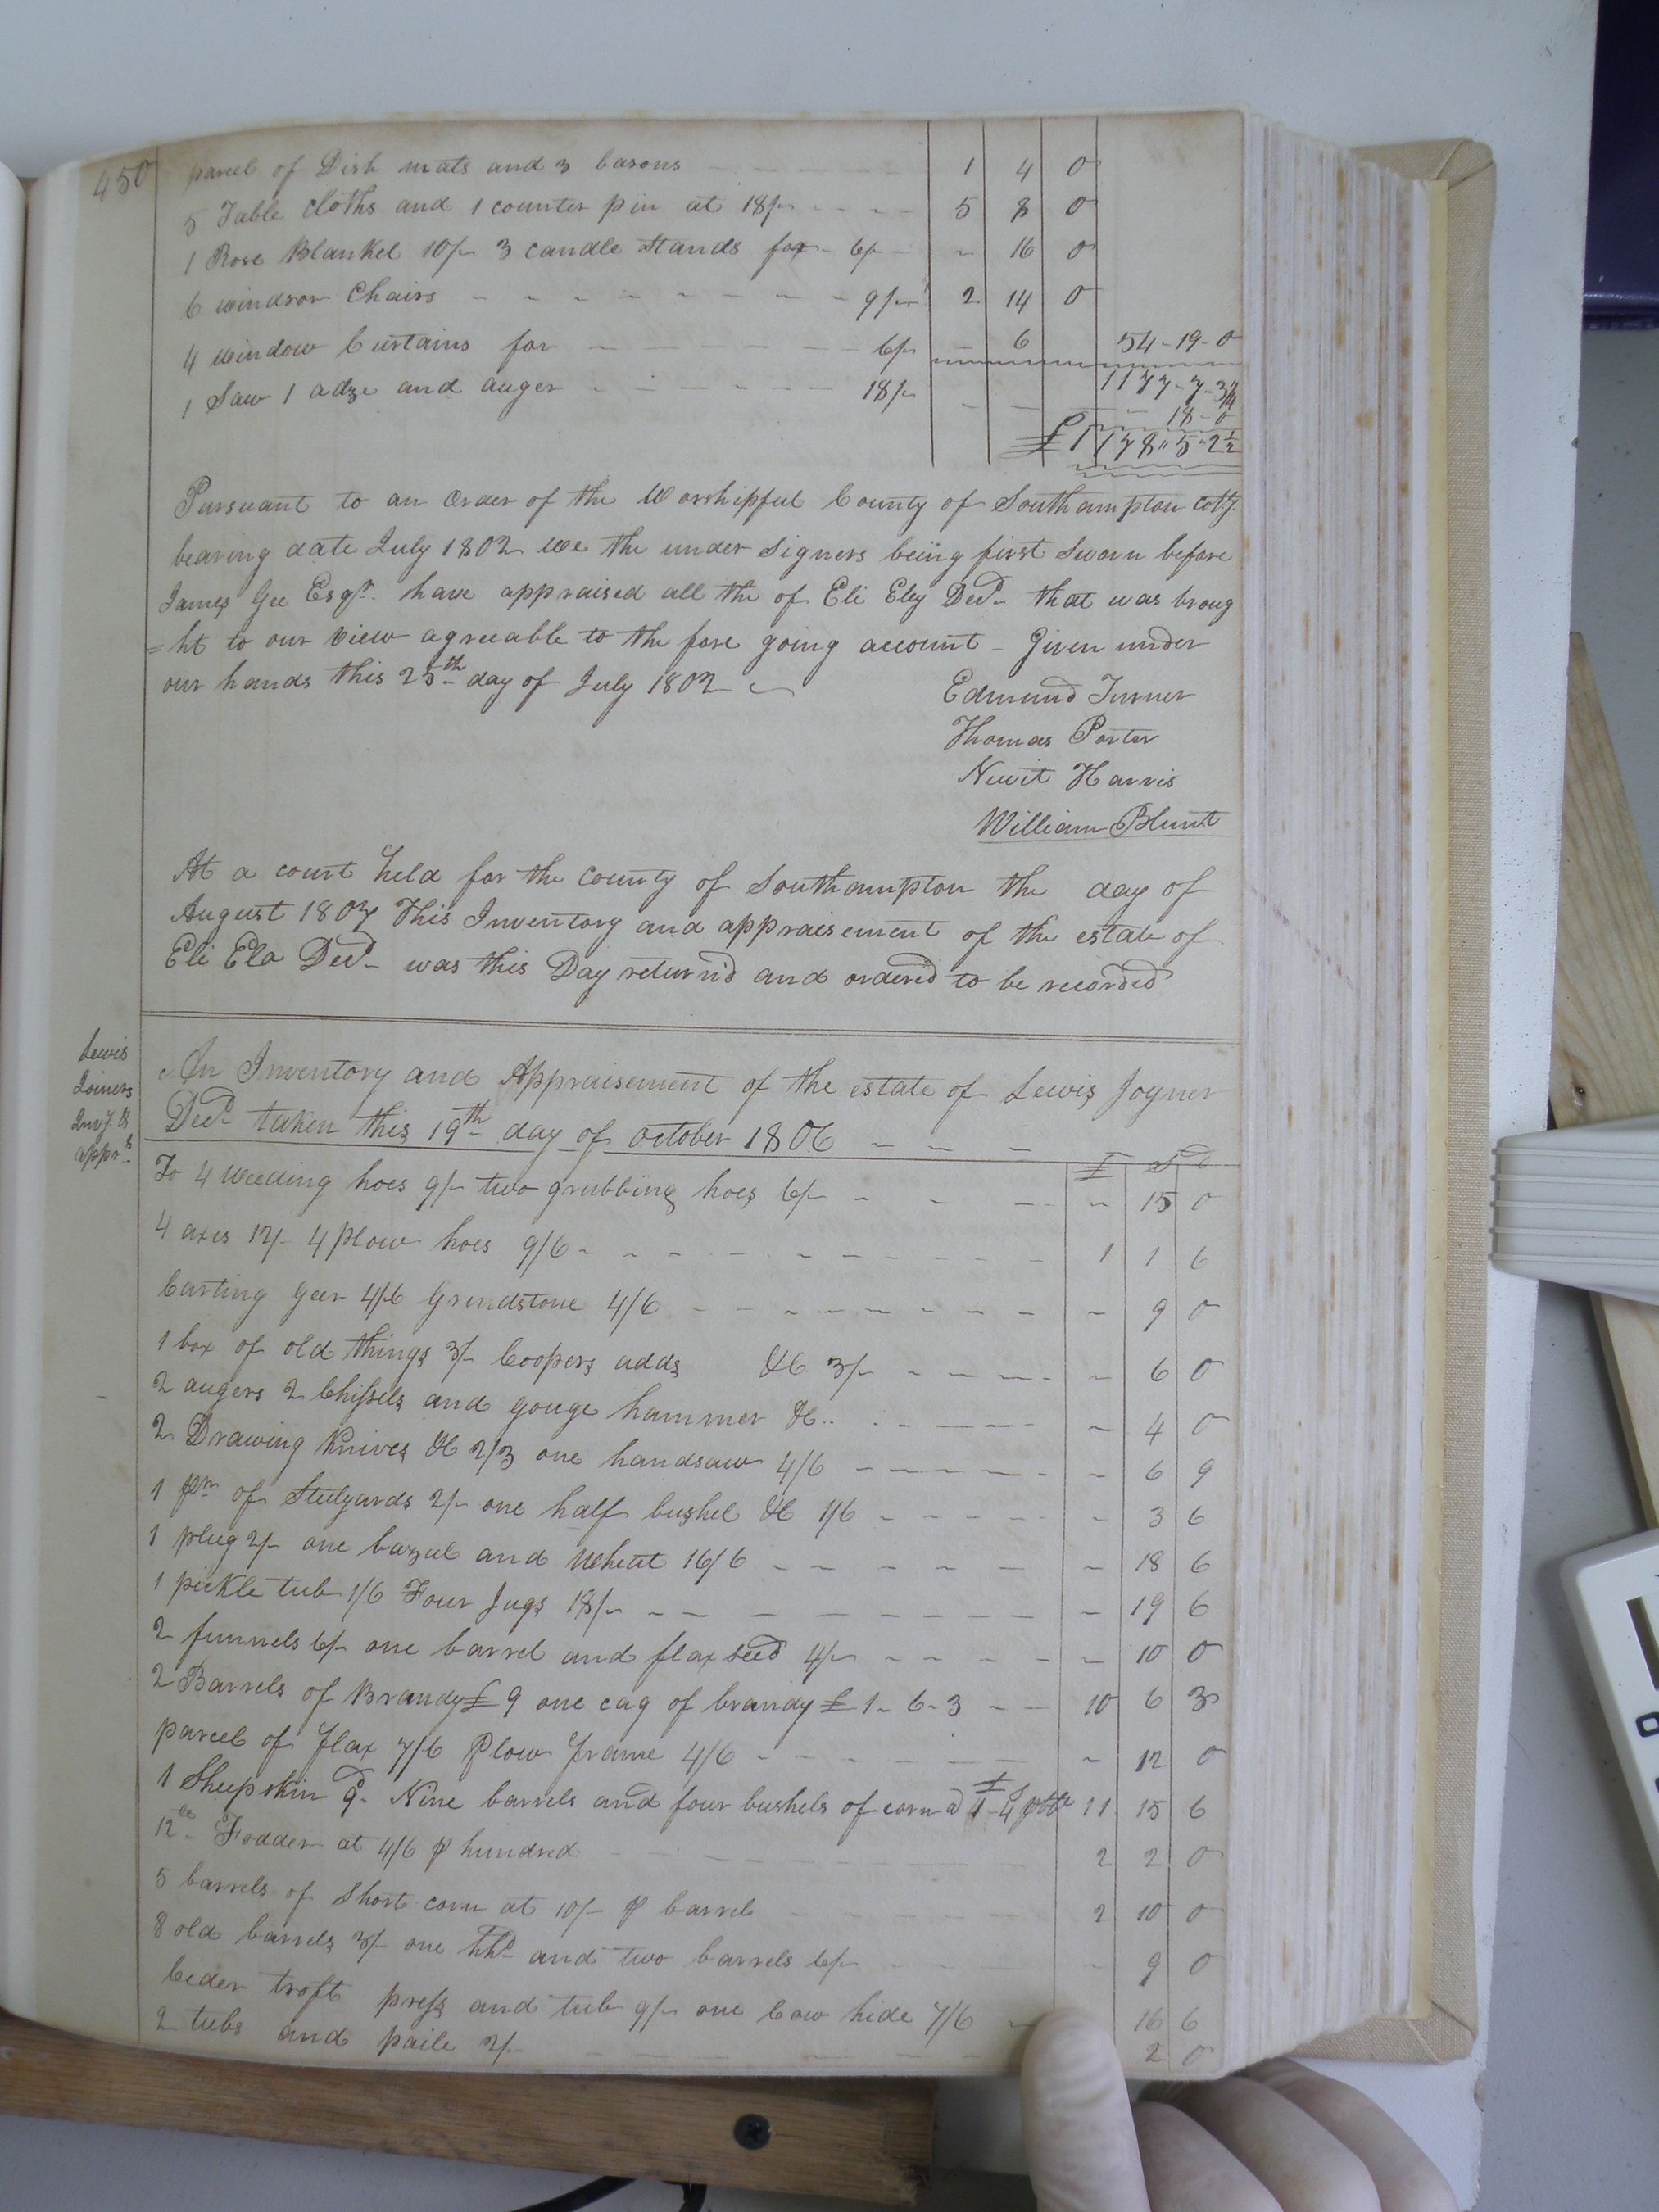 450
parcel of Dish mats and 3 basons 1 4 0
5 Table cloths and 1 counter pin at 18/- 5 8 0
1 Rose Blanket 10/- 3 candle Stands for 6/- - 16 0
6 windsor Chairs 9/- 2 14 0
4 window Curtains for 6/- - 6 54-19-0
1 Saw 1 adze and auger 18/- 1177-7-3¼
18-0
£1178"5-2½
Pursuant to an order of the Worshipful County of Southampton Coty.
bearing date July 1802 we the under signers being first Sworn before
James Gee Esqr. have appraised all the of Eli Eley Decd. that was broug
=ht to our view agreeable to the fore going account - Given under
our hands this 25th day of July 1802
Edmund Turner
Thomas Porter
Newit Harris
William Blunt
At a court held for the County of Southampton the day of
August 1807 This Inventory and appraisement of the estate of
Eli Ela Decd. was this Day returnd and ordered to be recorded
Lewis
Joiners
Invy. &
appr.t
An Inventory and Appraisement of the estate of Lewis Joyner
Decd. taken this 19th day of october 1806
£ S D
To 4 Weeding hoes 9/- two grubbing hoes 6/- - 15 0
4 axes 12/- 4 Plow hoes 9/6 1 1 6
Carting Geer 4/6 Grindstone 4/6 - 9 0
1 box of old things 3/- Coopers adds &C 3/- - 6 0
2 augers 2 Chissels and gouge hammer &C - 4 0
2 Drawing Knives &C 2/3 one handsaw 4/6 - 6 9
1 pr. of Stulyards 2/- one half bushel &C 1/6 - 3 6
1 plug 2/- one bazul and Wheat 16/6 - 18 6
1 pickle tub 1/6 Four Jugs 18/- - 19 6
2 funnels 6/- one barrel and flax seed 4/- - 10 0
2 Barrels of Brandy £9 one cag of brandy £1-6-3 10 6 3
parcel of flax 7/6 Plow frame 4/6 - 12 0
1 Sheepskin 9d. Nine barrels and four bushels of corn a £1-4 11 15 6
12 Fodder at 4/6 p hundred 2 2 0
5 barrels of Short corn at 10/- p barrel 2 10 0
8 old barrels 3/- one hhd and two barrels 6/- - 9 0
Cider troft press and tub 9/- one Cow hide 7/6 - 16 6
2 tubs and paile 2/- 2 0